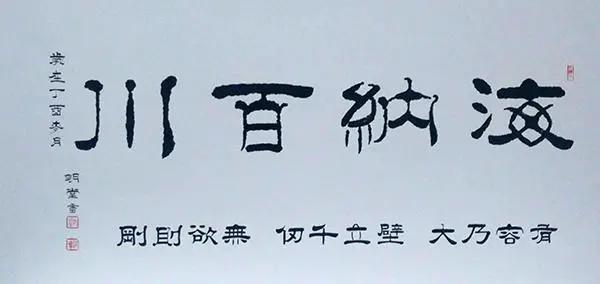 海納百川
有容乃大 壁立千仞 無欲則剛
歲在丁酉月
明堂書